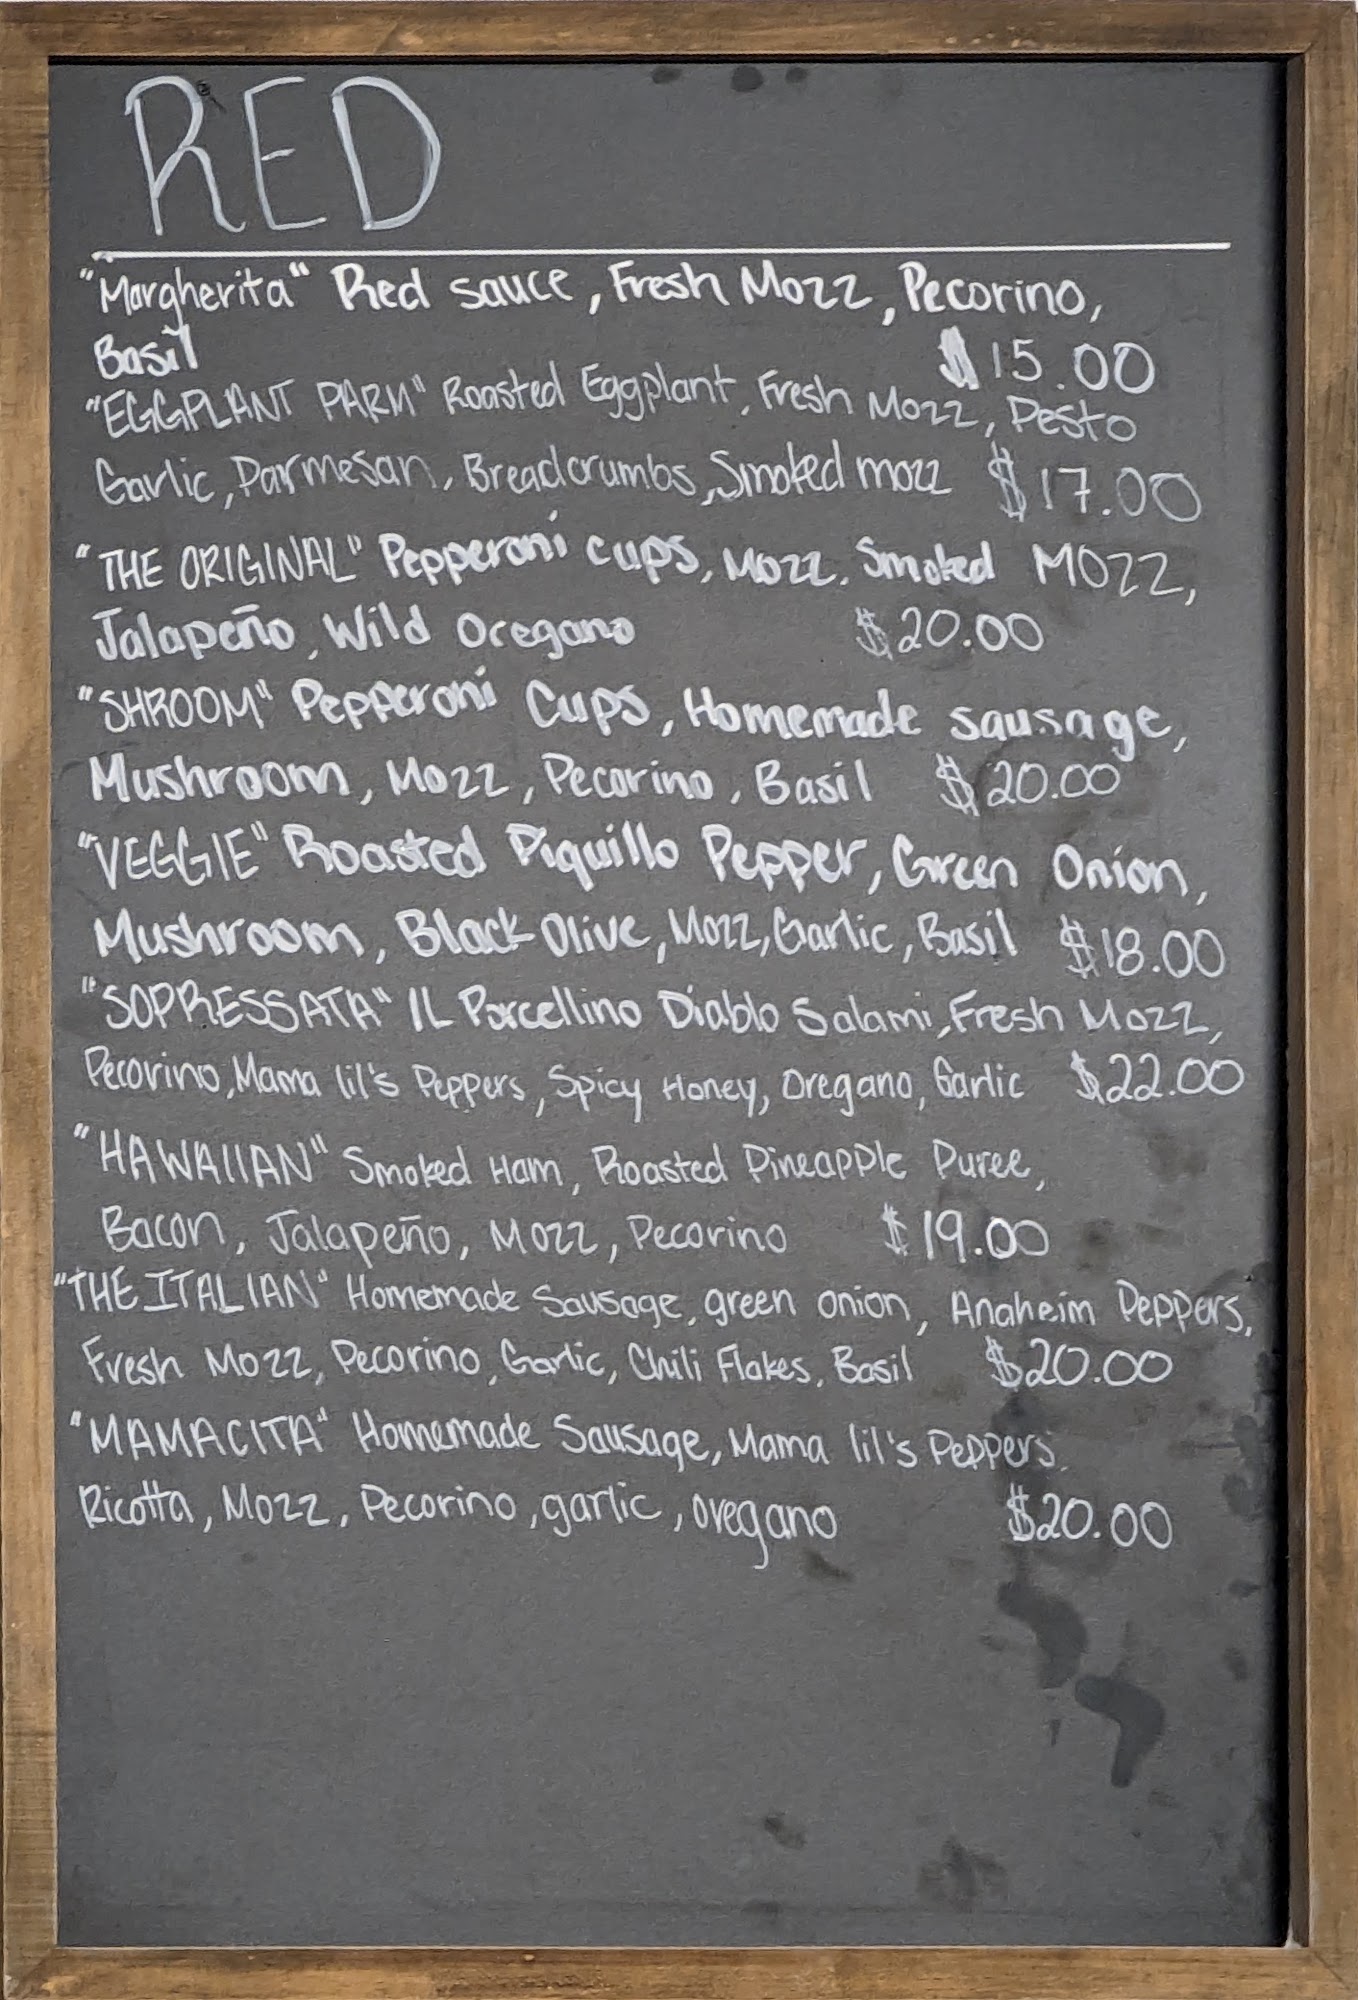 RED
"Margherita" Red sauce, Fresh Mozz, Pecorino,
Basil $15.00
"EGGPLANT PARM" Roasted Eggplant, Fresh Mozz, Pesto
Garlic, Parmesan, Breadcrumbs, Smoked mozz $17.00
"THE ORIGINAL" Pepperoni cups, Mozz, Smoked MOZZ,
Jalapeño, Wild Oregano $20.00
"SHROOM" Pepperoni Cups, Homemade sausage,
Mushroom, Mozz, Pecorino, Basil $20.00
"VEGGIE" Roasted Piquillo Pepper, Green Onion,
Mushroom, Black Olive, Mozz, Garlic, Basil $18.00
"SOPRESSATA" IL Porcellino Diablo Salami, Fresh Mozz,
Pecorino, Mama lil's Peppers, Spicy Honey, Oregano, Garlic $22.00
"HAWAIIAN" Smoked Ham, Roasted Pineapple Puree,
Bacon, Jalapeño, Mozz, Pecorino $19.00
"THE ITALIAN" Homemade Sausage, green onion, Anaheim Peppers,
Fresh Mozz, Pecorino, Garlic, Chili Flakes, Basil $20.00
"MAMACITA" Homemade Sausage, Mama lil's Peppers,
Ricotta, Mozz, Pecorino, garlic, oregano $20.00